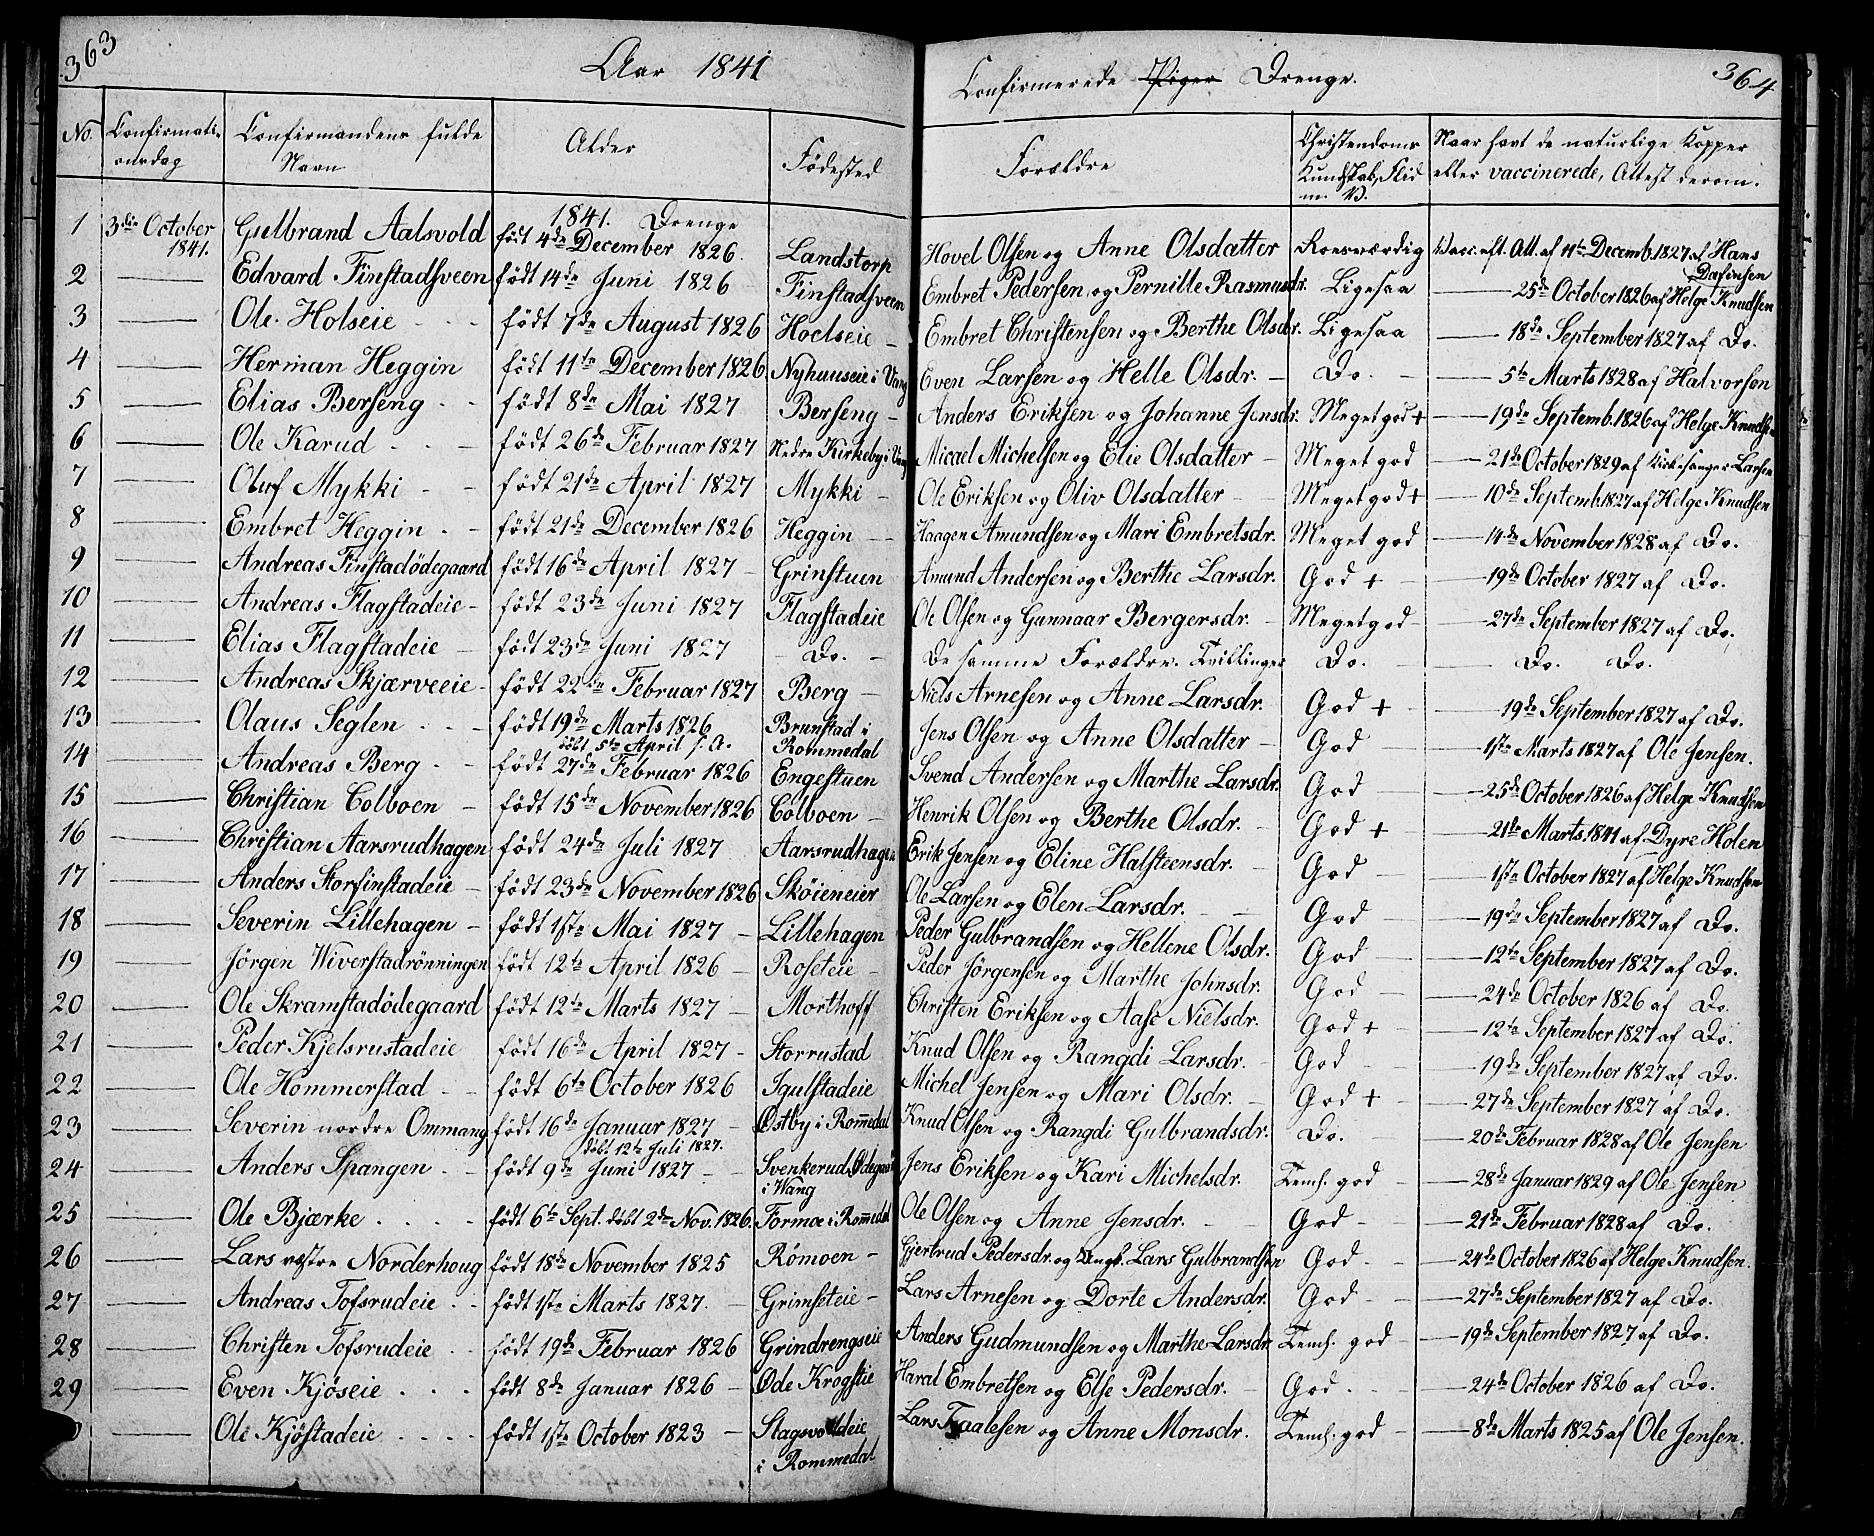 363
Aar 1841
Confirmerede Piger Drenge.
364
No. Confirmationsdag Confirmandens fulde Navn Alder Fødested Forældre Christendoms Kundskab, Flid m. V. Naar havt de naturlige Kopper eller vaccinerede, Attest derom.
1841. Drenge
1 3die October 1841. Gulbrand Aalsvold født 4de December 1826. Landstorp Hovel Olsen og Anne Olsdatter Roesværdig Vacc. eft. Att. af 11te Decemb. 1827 af Hans Dafinsen
2 — Edvard Finstadsveen født 14de Juni 1826 Finstadsveen Embret Pedersen og Pernille Rasmusdr. Ligesaa — 25de October 1826 af Helge Knudsen
3 — Ole Holseie - - født 7de August 1826 Hoelseie - Embret Christensen og Berthe Olsdr. Ligesaa — 18de September 1827 af Do.
4 — Herman Heggin født 11te December 1826 Nyhuuseie i Vang Even Larsen og Helle Olsdr. - Do. - — 5te Marts 1828 af Halvorsen
5 — Elias Berseng - - født 8de Mai 1827 Berseng - Anders Eriksen og Johanne Jensdr. Meget god + — 19de Septemb. 1826 af Helge Knudsen
6 — Ole Karud - - født 26de Februar 1827 Nedre Kirkeby i Vang Micael Michelsen og Elie Olsdatter - Meget god — 21de October 1829 af Kirkesanger Larsen
7 — Oluf Mykki - - født 21de April 1827 Mykki - Ole Eriksen og Oliv Olsdatter - Meget god + — 10de Septemb. 1827 af Helge Knudsen
8 — Embret Heggin - - født 21de December 1826 Heggin - Haagen Amundsen og Mari Embretsdr. Meget god — 14de November 1828 af Do.
9 — Andreas Finstadödegaard født 16de April 1827 - Grinstuen Amund Andersen og Berthe Larsdr. God + - — 19de October 1827 af Do.
10 — Andreas Flagstadeie - født 23de Juni 1827 Flagstadeie Ole Olsen og Gunnaar Bergersdr. - Meget god - — 27de September 1827 af Do.
11 — Elias Flagstadeie - født 23de Juni 1827 - Do. - De samme Forældre. Tvillinger Do. - — Do. Do.
12 — Andreas Skjærveeie - født 22de Februar 1827 Berg - Niels Arnesen og Anne Larsdr. God + - — 19de September 1827 af Do.
13 — Olaus Seglen - - - født 19de Marts 1826 döbt 5te April s. A. Brunstad i Rommedal Jens Olsen og Anne Olsdatter - God — 1ste Marts 1827 af Ole Jensen.
14 — Andreas Berg - - født 27de Februar 1826 Engestuen Svend Andersen og Marthe Larsdr. God - — 25de October 1826 af Helge Knudsen
15 — Christian Colboen - født 15de November 1826 Colboen - Henrik Olsen og Berthe Olsdr. - God + — 21de Marts 1841 af Dyre Holen
16 — Christian Aarsrudhagen født 24de Juli 1827 Aarsrudhagen Erik Jensen og Eline Halsteensdr. - God - — 1ste October 1827 af Helge Knudsen
17 — Anders Storfinstadeie - født 23de November 1826 Skøieneier Ole Larsen og Elen Larsdr. - - God — 19de September 1827 af Do.
18 — Severin Lillehagen - født 1ste Mai 1827 - Lillehagen Peder Gulbrandsen og Hellene Olsdr. God - — 12te September 1827 af Do.
19 — Jörgen Wiverstadrönningen født 12te April 1826 - Roseteie - Peder Jörgensen og Marthe Johnsdr. God - — 24de October 1826 af Do.
20 — Ole Skramstadödegaard født 12te Marts 1827 - Morthoff Christen Eriksen og Aase Nielsdr. God + - — 12te September 1827 af Do.
21 — Peder Kjelsrustadeie født 16de April 1827 - Storrustad Knud Olsen og Rangdi Larsdr. - God - — 19de September 1827 af Do.
22 — Ole Hommerstad - - født 6te October 1826 Igulstadeie Michel Jensen og Mari Olsdr. - God + - — 27de September 1827 af Do.
23 — Severin nordre Ommang født 16de Januar 1827 - döbt 12te Juli 1827. Østby i Rommedal Knud Olsen og Rangdi Gulbrandsdr. Do. — 20de Februar 1828 af Ole Jensen
24 — Anders Spangen - - født 9de Juni 1827 - Svenkerud Ødegaard i Wang Jens Eriksen og Kari Michelsdr. Temh. god - — 28de Januar 1829 af Ole Jensen
25 — Ole Bjærke - - - født 6te Sept. döbt 2de Nov. 1826. Formoe i Rommedal Ole Olsen og Anne Jensdr. - - God - - — 21de Februar 1828 af Do.
26 — Lars vestre Norderhoug født 18de November 1825 Römoen - Gjertrud Pedersdr. og Ungk. Lars Gulbrandsen God - - — 24de October 1826 af Helge Knudsen.
27 — Andreas Tofsrudeie - - født 1ste Marts 1827. - Grimseteie - Lars Arnesen og Dorte Andersdr. God - - — 27de September 1827 af Do.
28 — Christen Tofsrudeie - - født 19de Februar 1826 Grindrengseie Anders Gudmundsen og Marthe Larsdr. Temh. god - — 19de September 1827 af Do.
29 — Even Kjöseie - - - født 8de Januar 1826 - Øde Krogstie Haral Embretsen og Else Pedersdr. - God - - — 24de October 1826 af Do.
— Ole Kjöstadeie - - - født 1ste October 1823 - Stagsvoldeie i Rommedal Lars Taalesen og Anne Monsdr. Temh. god - — 8de Marts 1825 af Ole Jensen.